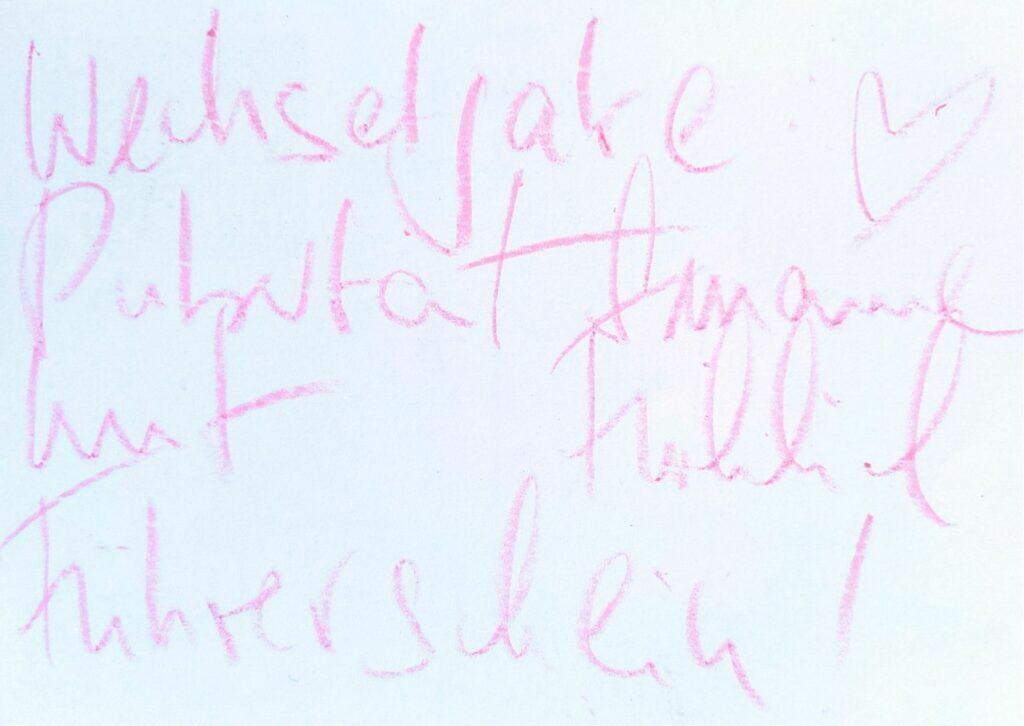 Wechseljahre
Pubertät Susanne
mit Fröhlich
Führerschein!